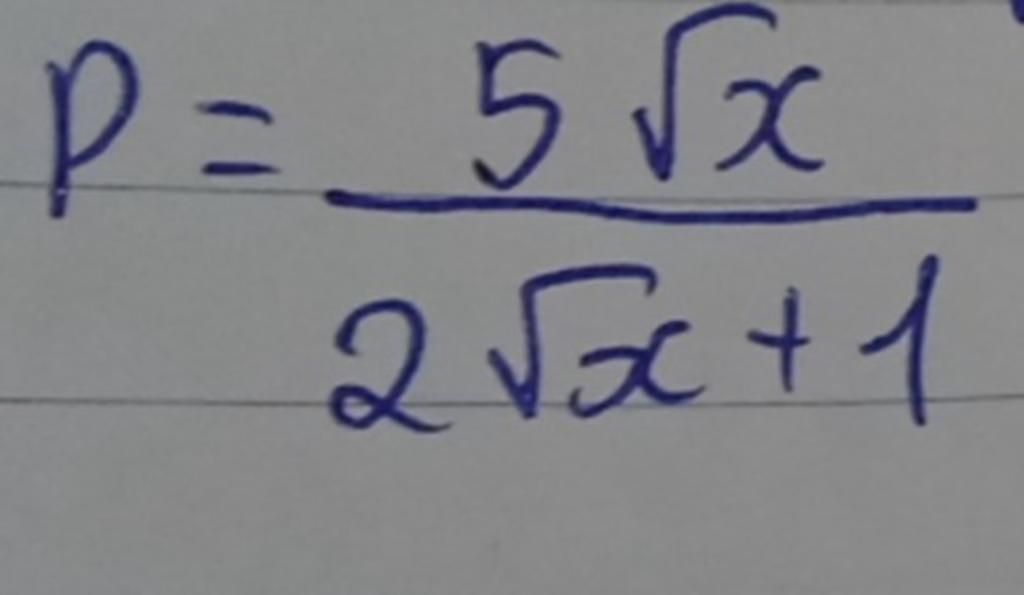 P = \frac{5\sqrt{x}}{2\sqrt{x}+1}